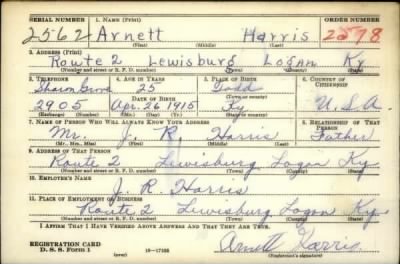 SERIAL NUMBER 1. NAME (Print) ORDER NUMBER
2562 Arnett Harris 2578
(First) (Middle) (Last)
2. ADDRESS (Print)
Route 2 Lewisburg Logan Ky
(Number and street or R. F. D. number) (Town) (County) (State)
3. TELEPHONE 4. AGE IN YEARS 5. PLACE OF BIRTH 6. COUNTRY OF CITIZENSHIP
Sharon Grove 25 Todd
DATE OF BIRTH (Town or county)
2905 Apr. 26 1915 Ky. U.S.A.
(Exchange) (Number) (Mo.) (Day) (Yr.) (State or country)
7. NAME OF PERSON WHO WILL ALWAYS KNOW YOUR ADDRESS 8. RELATIONSHIP OF THAT PERSON
Mr. J. R. Harris Father
(Mr., Mrs., Miss) (First) (Middle) (Last)
9. ADDRESS OF THAT PERSON
Route 2 Lewisburg Logan Ky
(Number and street or R. F. D. number) (Town) (County) (State)
10. EMPLOYER'S NAME
J. R. Harris
11. PLACE OF EMPLOYMENT OR BUSINESS
Route 2 Lewisburg Logan Ky.
(Number and street or R. F. D. number) (Town) (County) (State)
I AFFIRM THAT I HAVE VERIFIED ABOVE ANSWERS AND THAT THEY ARE TRUE.
REGISTRATION CARD
D. S. S. Form 1 (over) Arnett Harris
(Registrant's signature)